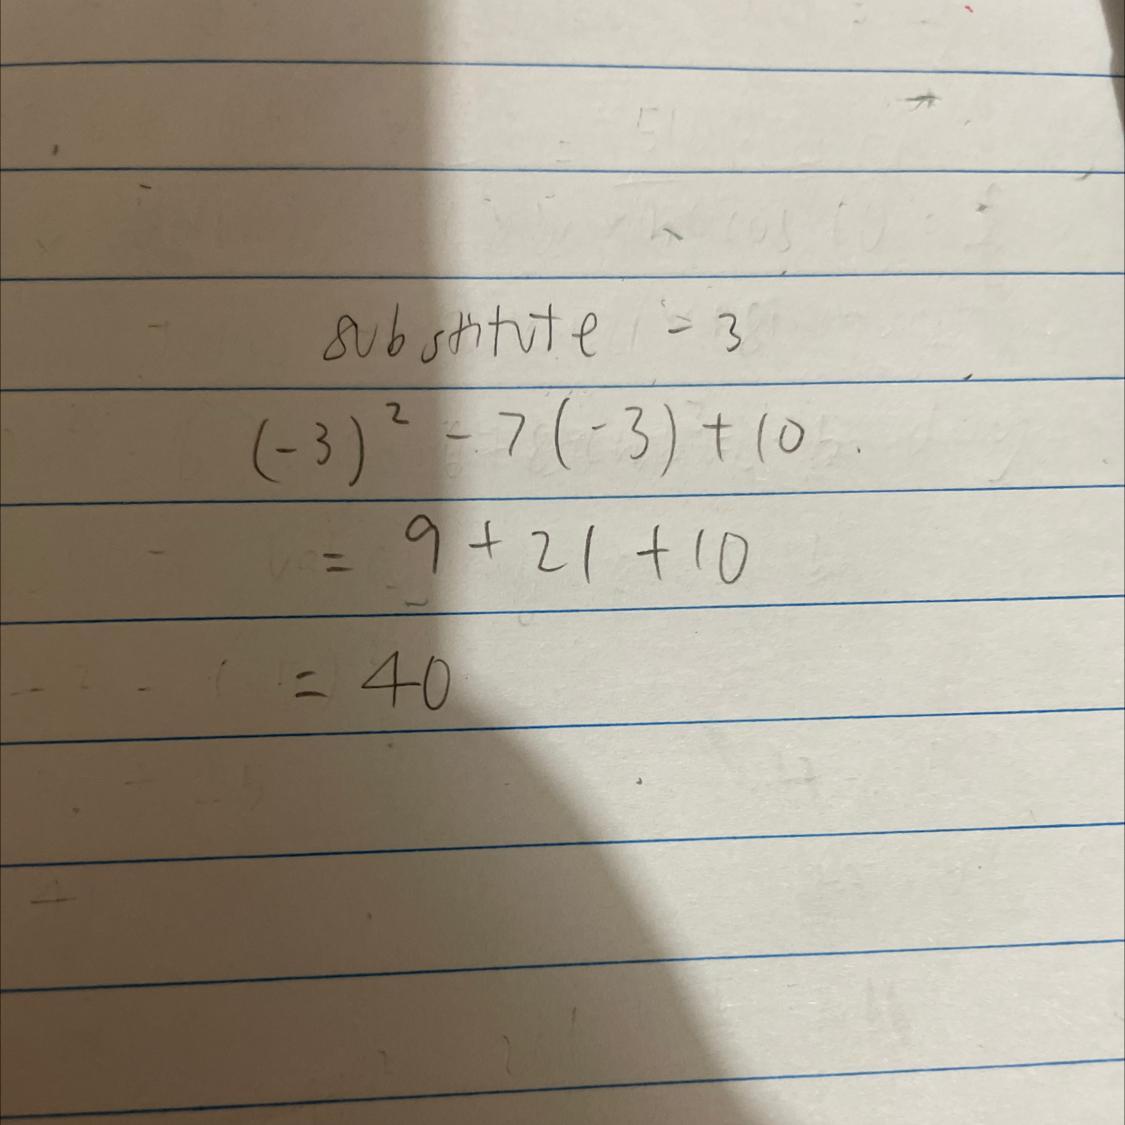 substitute = 3
(-3)² - 7(-3) + 10
= 9 + 21 + 10
= 40